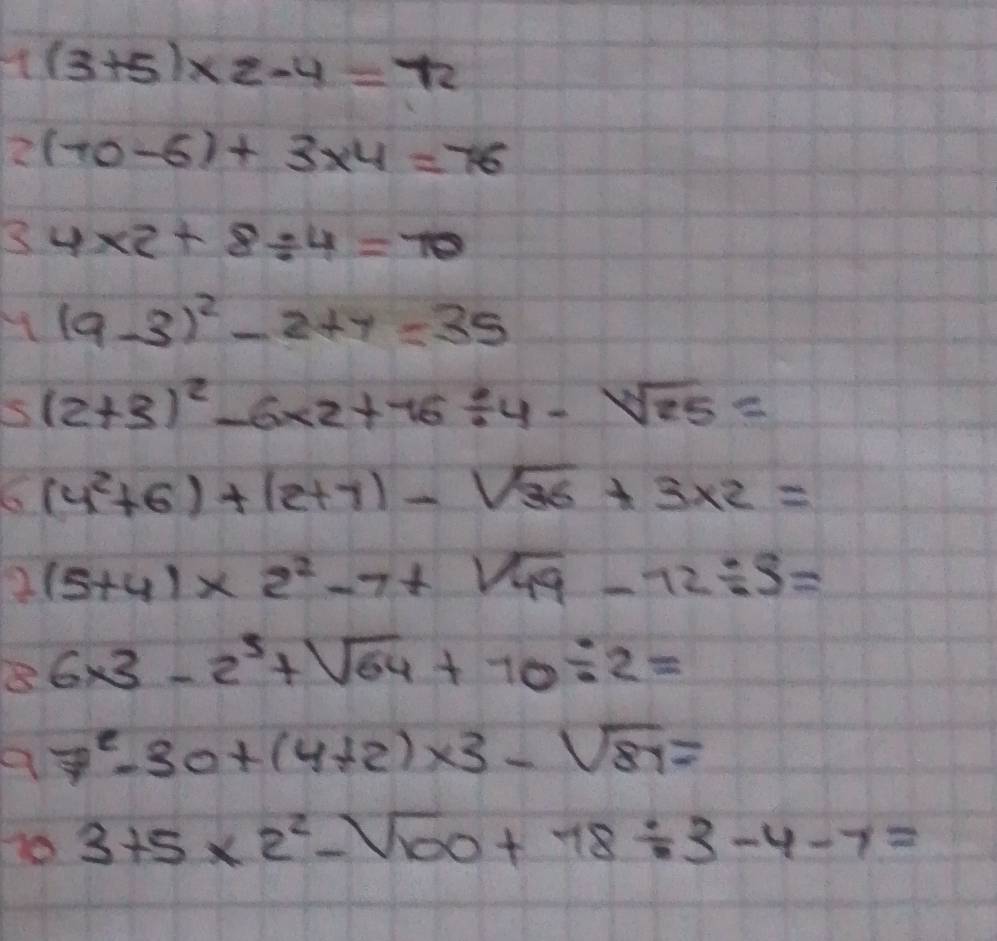 1 (3+5)×2-4 = 12
2 (10-6)+ 3×4 = 16
3 4×2+ 8÷4 = 10
4 (9-3)² - 2+1 = 35
5 (2+3)² - 6×2+16÷4 - √25 =
6 (4²+6)+(2+1) - √36 + 3×2 =
7 (5+4)× 2² -7+ √49 - 12÷3 =
8 6×3 - 2³+√64 + 10÷2 =
9 7²-30+(4+2)×3 - √81 =
10 3+5×2² - √100 + 18÷3 - 4 - 1 =